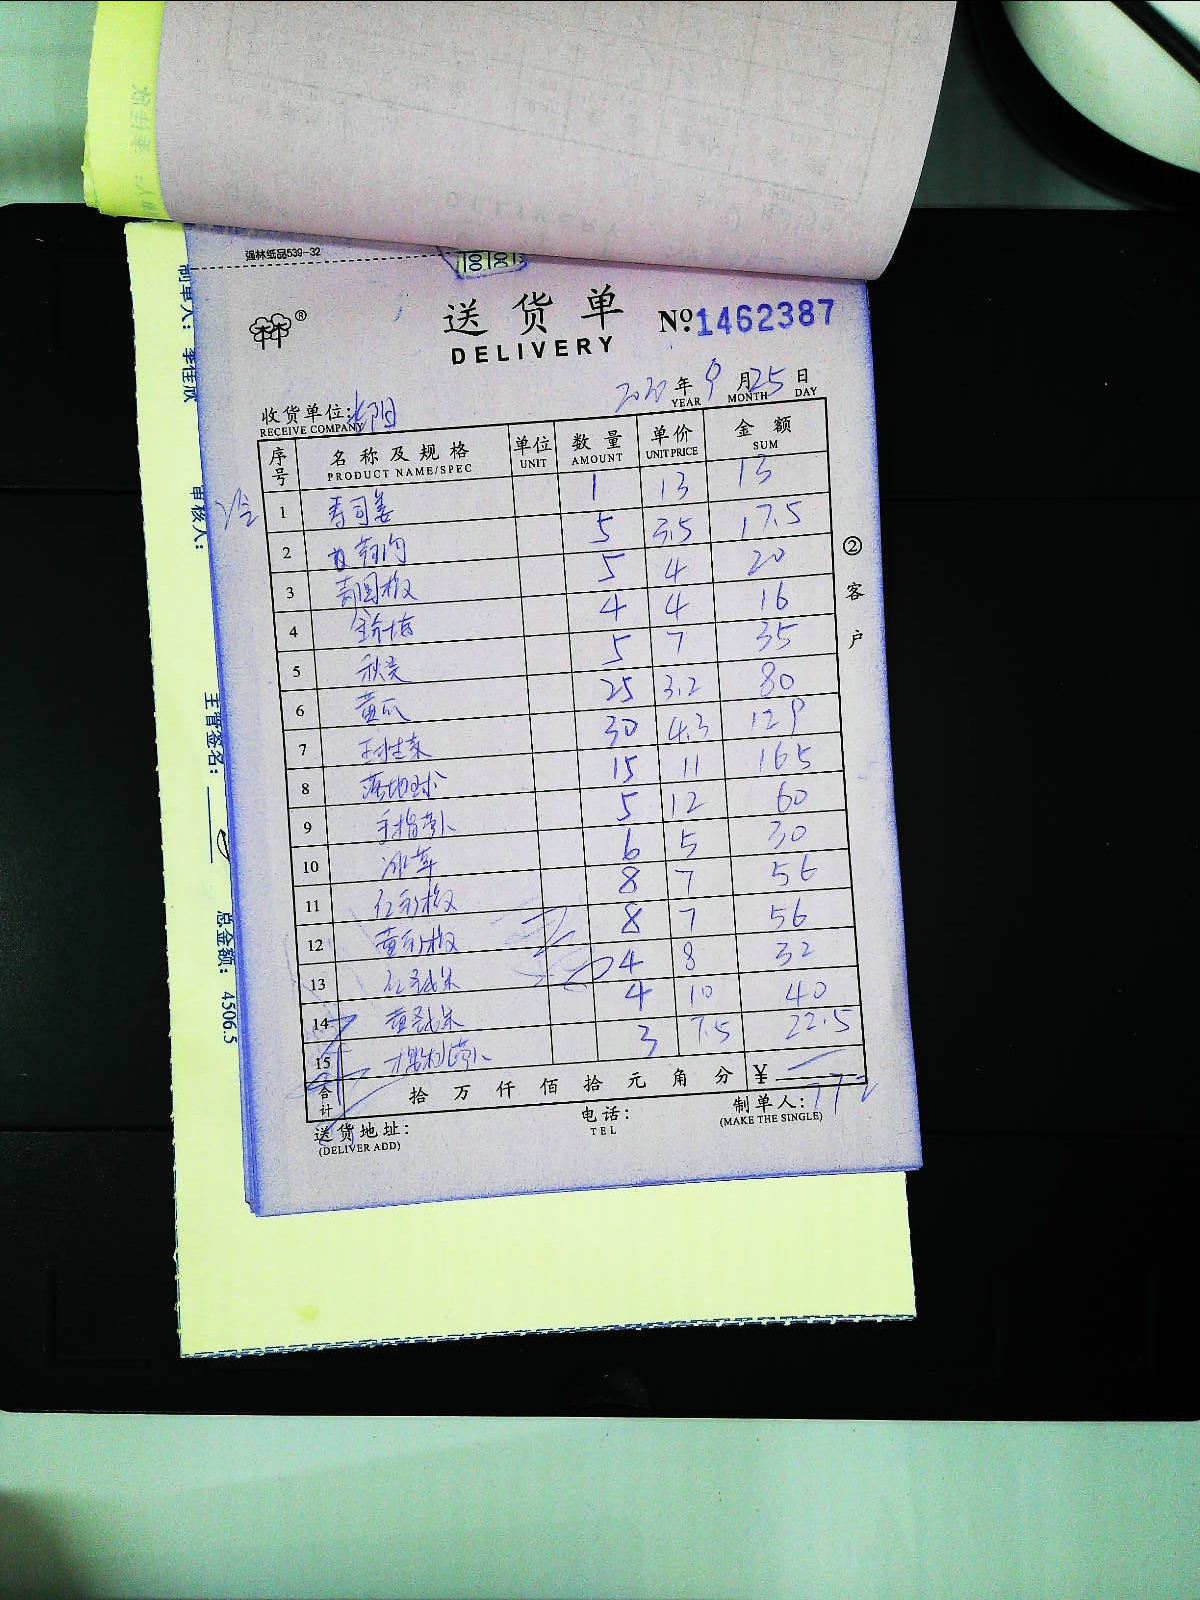 强林纸品539-32
送货单
DELIVERY
®
№ 1462387
2020 年 9 月 25 日
YEAR MONTH DAY
收货单位:
RECEIVE COMPANY
序号 名称及规格 单位 数量 单价 金额
PRODUCT NAME/SPEC UNIT AMOUNT UNIT PRICE SUM
1 寿司姜 1 13 13
2 5 3.5 17.5
3 青圆椒 5 4 20
4 4 4 16
5 秋葵 5 7 35
6 黄瓜 25 3.2 80
7 30 4.3 129
8 15 11 165
9 手指萝卜 5 12 60
10 冰草 6 5 30
11 红彩椒 8 7 56
12 黄彩椒 8 7 56
13 4 8 32
14 4 10 40
15 3 7.5 22.5
合计 拾 万 仟 佰 拾 元 角 分 ¥
772
送货地址:
(DELIVER ADD)
电话:
TEL
制单人:
(MAKE THE SINGLE)
②客户
制单人: 李佳欣
审核人:
主管签名:
总金额: 4506.5